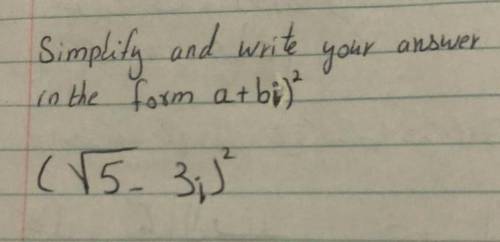 Simplify and write your answer
in the form a+bi)²
(√5 - 3i)²